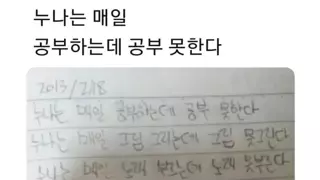 누나는 매일
공부하는데 공부 못한다
2013/2/18
누나는 매일 공부하는데 공부 못한다
누나는 매일 그림 그리는데 그림 못그린다
누나는 매일 노래 부르는데 노래 못부른다